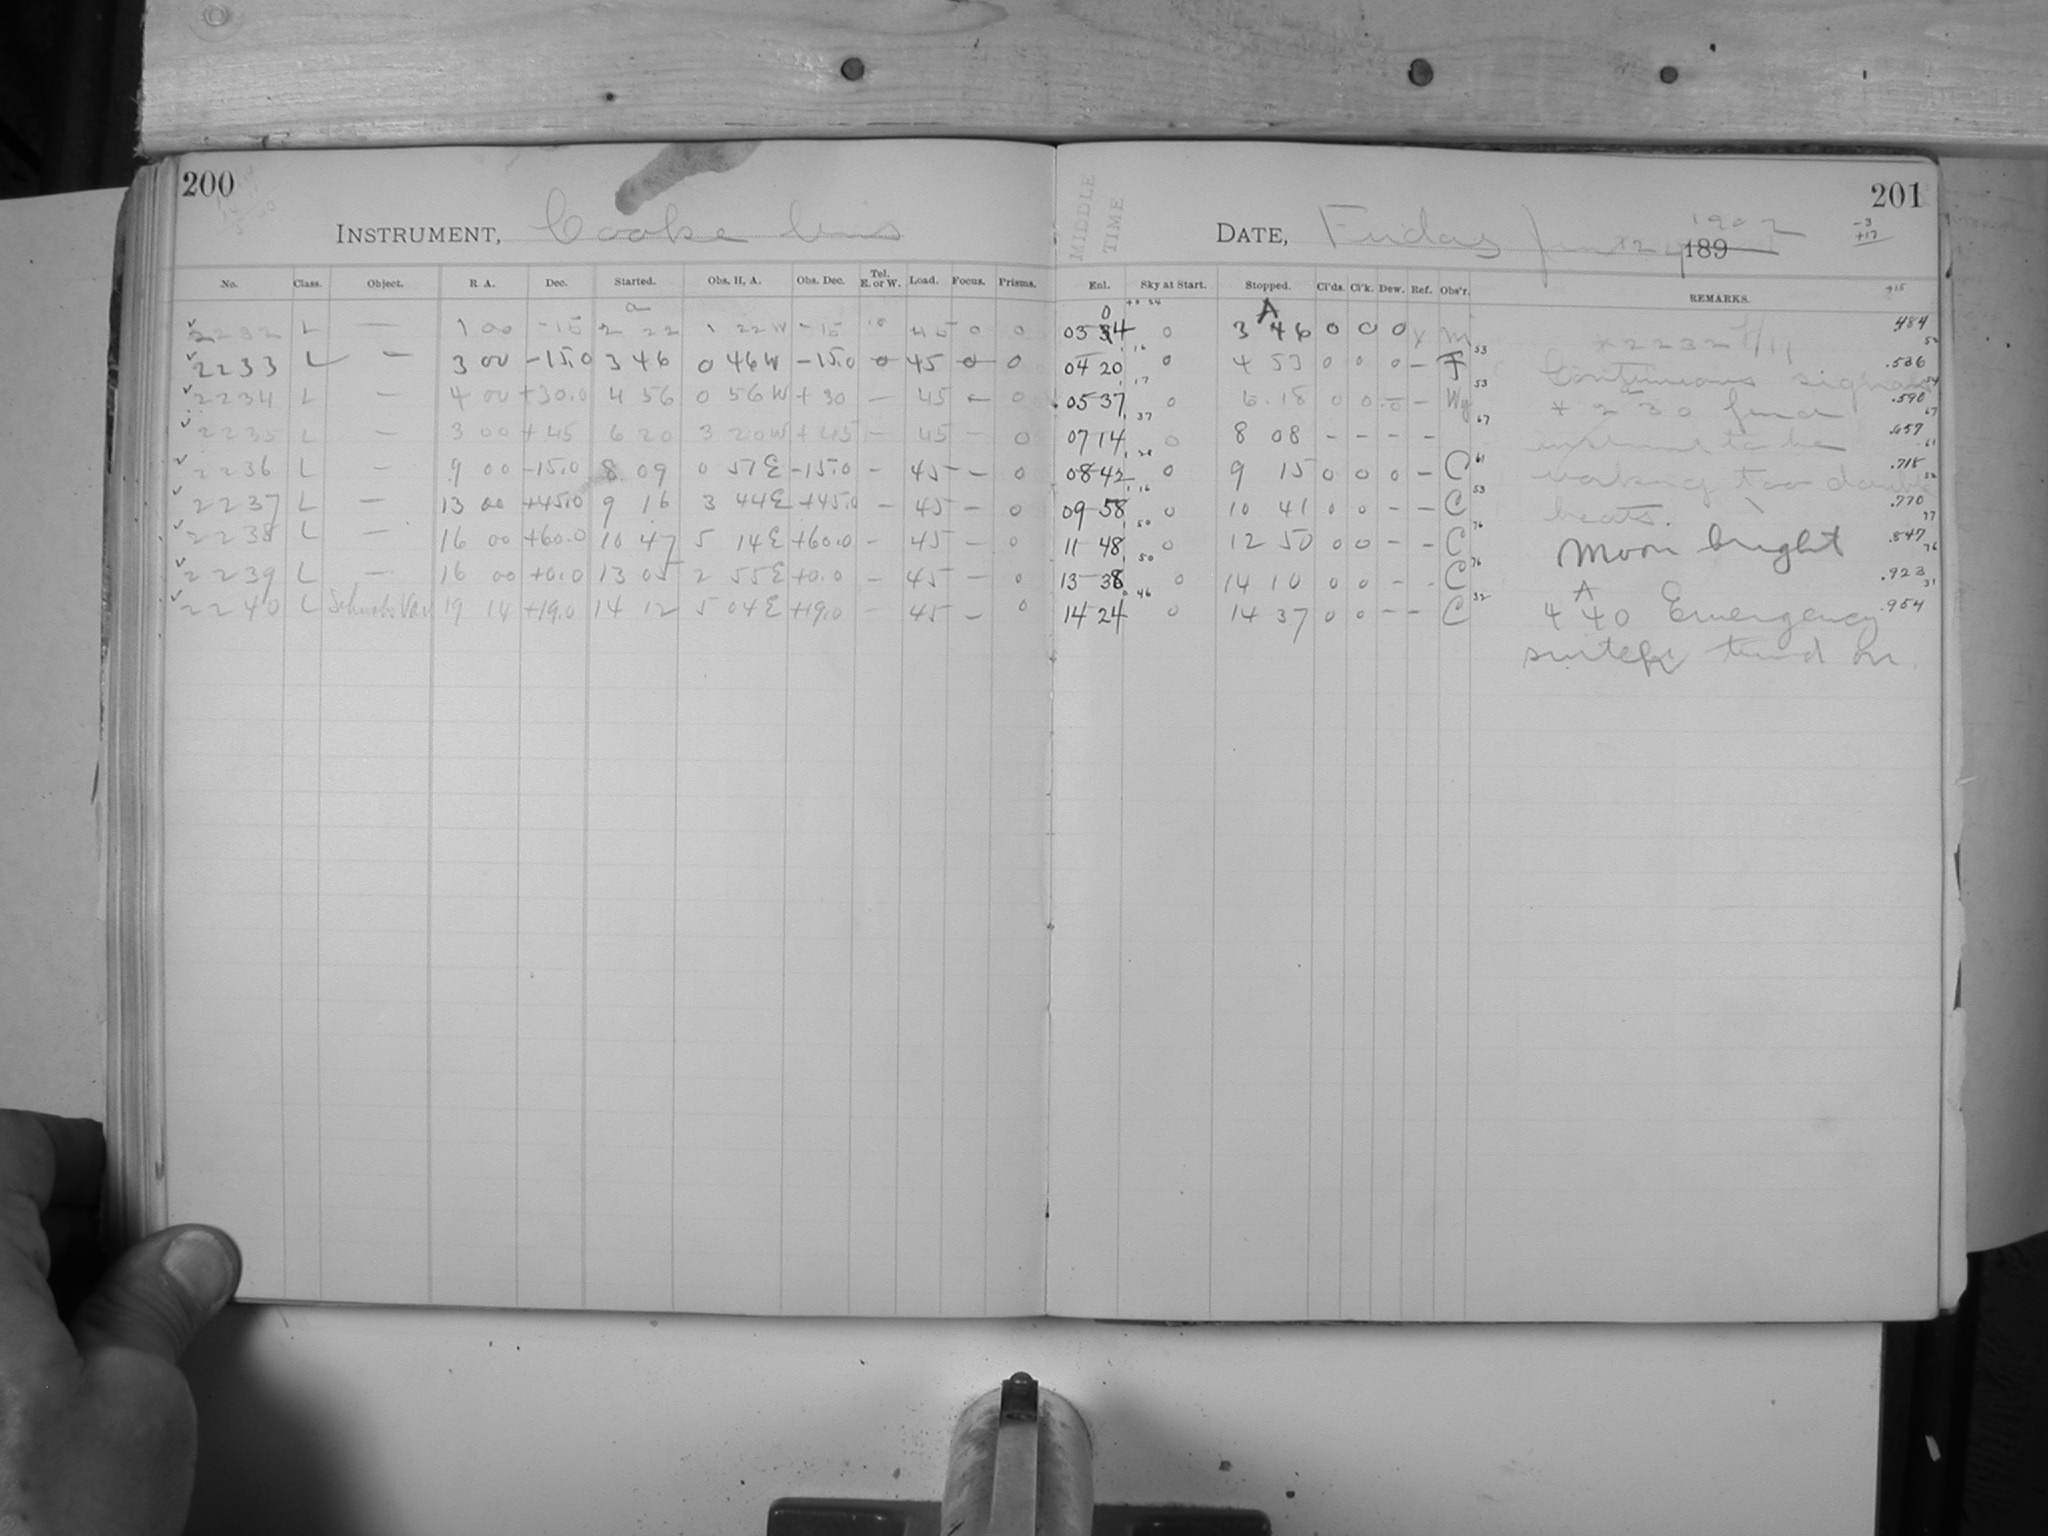 200
INSTRUMENT, Cooke lens
No. Class. Object. R A. Dec. Started. Obs. H. A. Obs. Dec. Tel. E. or W. Load. Focus. Prisms.
a
2232 L — 1 00 -15 2 22 1 22W -15 0 45 0 0
2233 L — 3 00 -15.0 3 46 0 46W -15.0 0 45 0 0
2234 L — 4 00 +30.0 4 56 0 56W +30 — 45 — 0
2235 L — 3 00 +45 6 20 3 20W +45 — 45 — 0
2236 L — 9 00 -15.0 8 09 0 51E -15.0 — 45 — 0
2237 L — 13 00 +45.0 9 16 3 44E +45.0 — 45 — 0
2238 L — 16 00 +60.0 10 47 5 14E +60.0 — 45 — 0
2239 L — 16 00 +0.0 13 05 2 55E +0.0 — 45 — 0
2240 L 19 14 +19.0 14 12 5 04E +19.0 — 45 — 0
MIDDLE
TIME
201
DATE, Friday 1902 189
-3
+17
Enl. Sky at Start. Stopped. Cl'ds. Cl'k. Dew. Ref. Obs'r. REMARKS.
+15
A
03 34 0 3 46 0 0 0 x M * 2232 .484
04 20 0 4 53 0 0 0 — F 53 Continuous signals .536
05 37 6.18 0 0 0 — Wg 53 .590
07 14 0 8 08 — — — — 67 .657
08 42 0 9 15 0 0 0 — C 61 working too double .718
09 58 0 10 41 0 0 — — C 53 beats. .770
11 48 0 12 50 0 0 — — C 76 Moon bright .847
13 38 0 14 10 0 0 — — C 76 .923
14 24 0 14 37 0 0 — — C 32 4 40 Emergency .954
on.